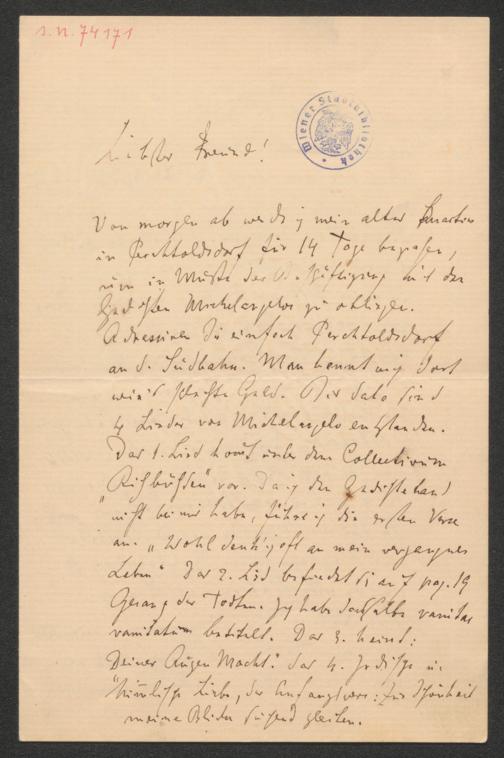 I.N. 74171
Wiener Stadtbibliothek
Liebster Freund!
Von morgen ab werde ich mein altes Quartier
in Perchtoldsdorf für 14 Tage beziehen,
um in Muße der Beschäftigung mit den
Gedichten Michelangelos zu obliegen.
Adressiren Du einfach Perchtoldsdorf
an d. Südbahn. Man kennt mich dort
wie's schlechte Geld. Bis dato sind
4 Lieder von Michelangelo entstanden.
Das 1. Lied kommt unter dem Collectivum
vor. Da ich den Gedichteband
nicht bei mir habe, führe ich die ersten Verse
an. „Wohl denk' ich oft an mein vergangnes
Leben" Das 2. Lied befindet sich auf pag. 19
Gesang der Todten. Ich habe dasselbe vanitas
vanitatum betitelt. Das 3. heisst:
Deiner Augen Macht: das 4. Irdische u.
himmlische Liebe, der Anfangsvers: Zur Schönheit
meine Blicke suchend gleiten.